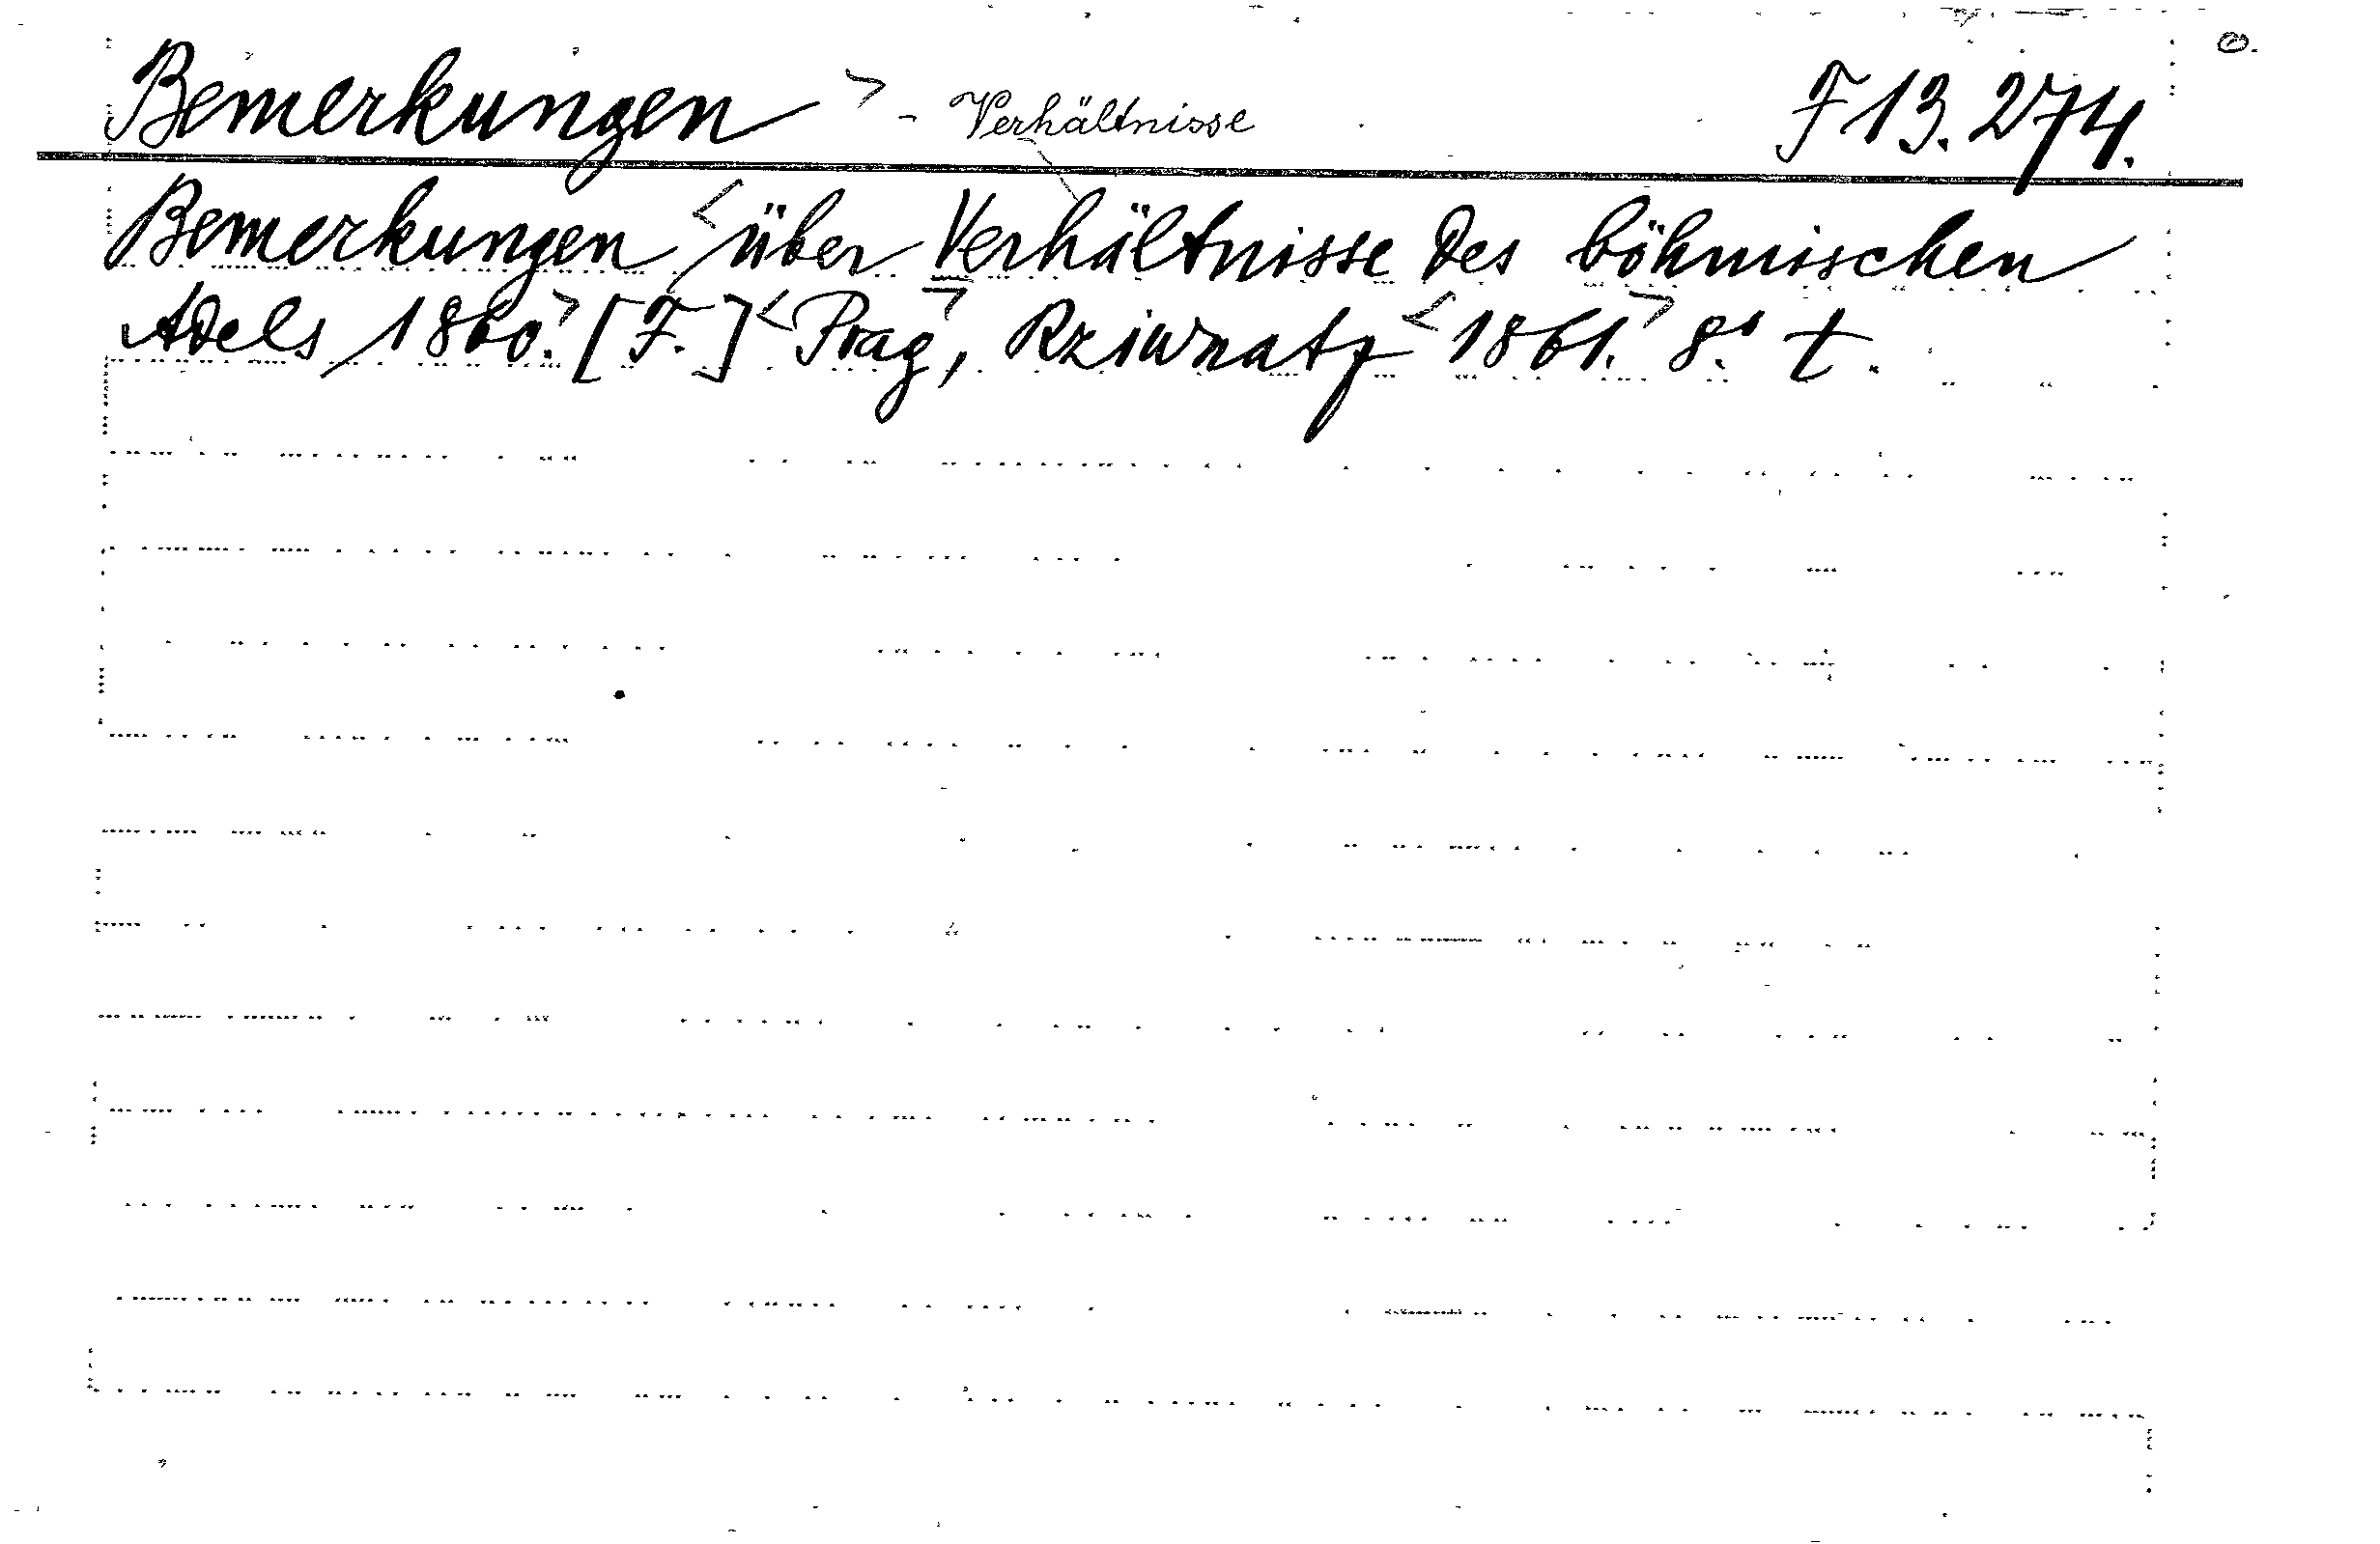 Bemerkungen > - Verhältnisse F 13. 274.
Bemerkungen < über Verhältnisse des böhmischen
Adels 1860. > [F.] < Prag >, Rziwnatz < 1861. > 8.° t.